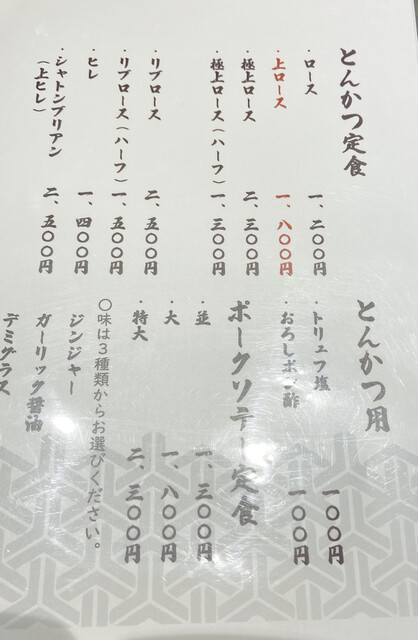 とんかつ定食
・ロース 一、二〇〇円
・上ロース 一、八〇〇円
・極上ロース 二、三〇〇円
・極上ロース(ハーフ) 一、三〇〇円
・リブロース 二、五〇〇円
・リブロース(ハーフ) 一、五〇〇円
・ヒレ 一、四〇〇円
・シャトンブリアン 二、五〇〇円
(上ヒレ)
とんかつ用
・トリュフ塩 一〇〇円
・おろしポン酢 一〇〇円
ポークソテー定食
・並 一、三〇〇円
・大 一、八〇〇円
・特大 二、三〇〇円
〇味は3種類からお選びください。
ジンジャー
ガーリック醤油
デミグラス